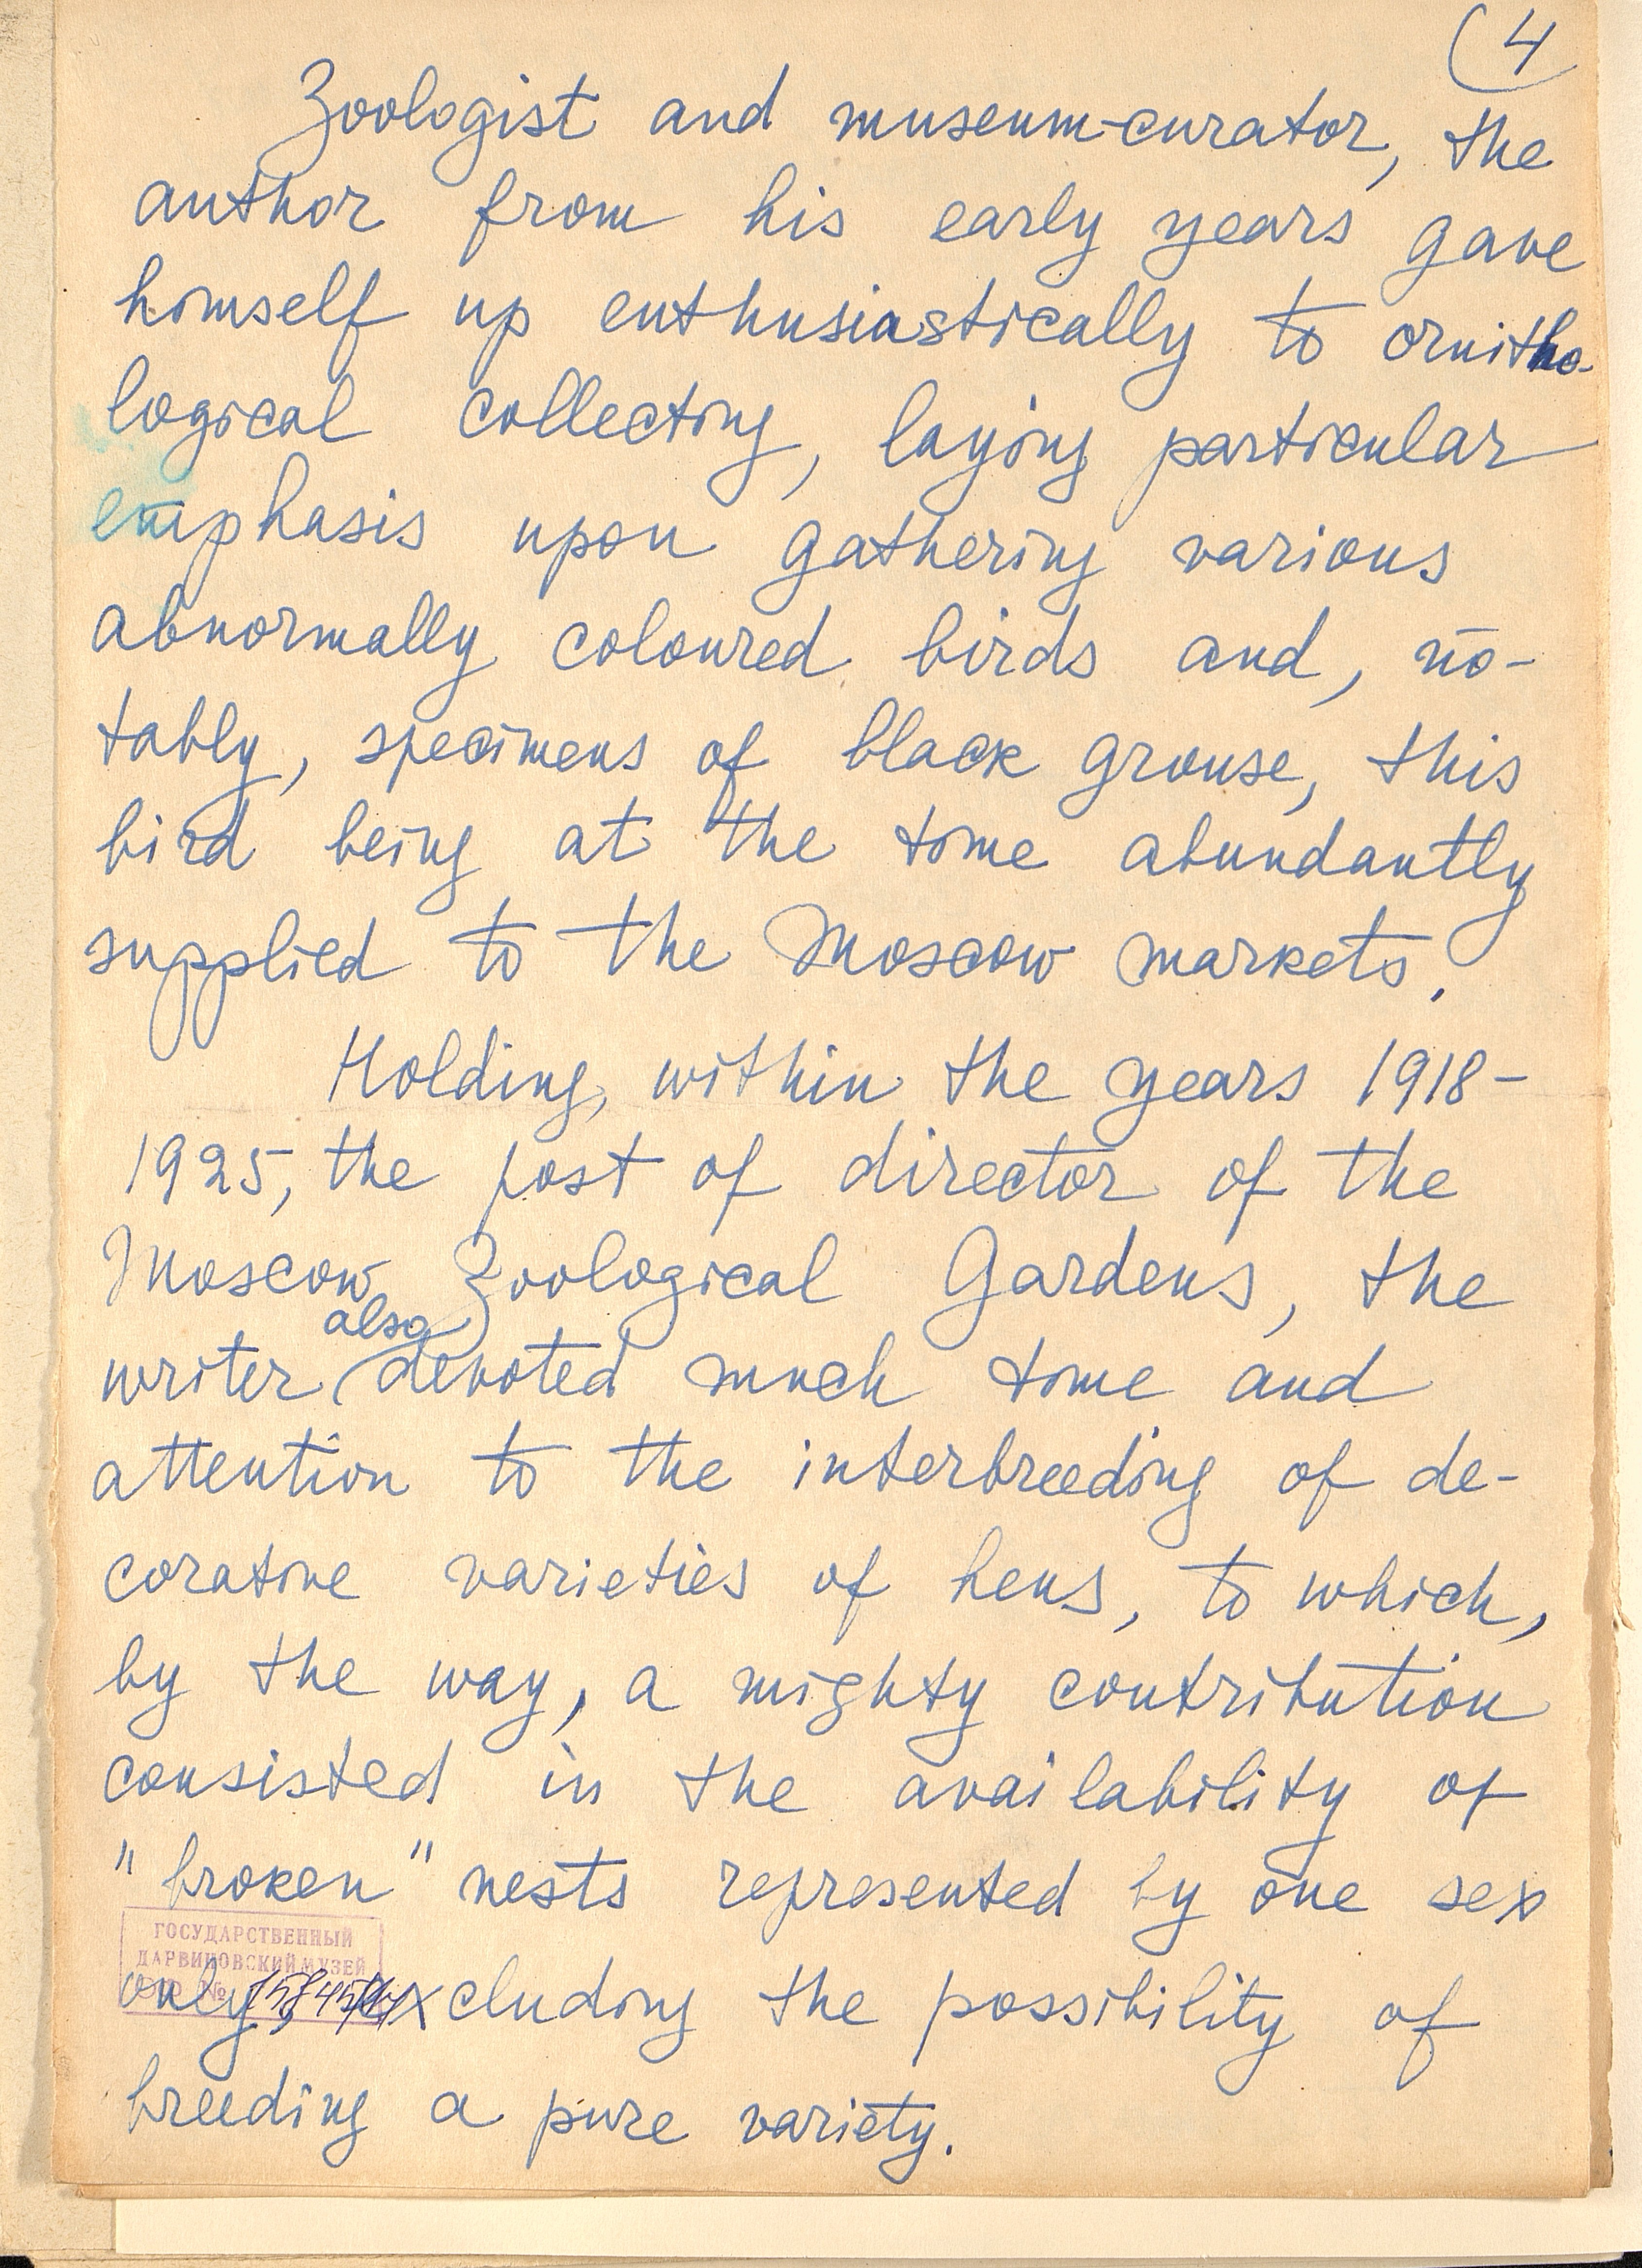 (4
Zoologist and museum-curator, the
author from his early years gave
himself up enthusiastically to ornitho-
logical collecting, laying particular
emphasis upon gathering various
abnormally coloured birds and, no-
tably, specimens of black grouse, this
bird being at the time abundantly
supplied to the Moscow markets.
Holding, within the years 1918-
1925, the post of director of the
Moscow Zoological Gardens, the
also
writer devoted much time and
attention to the interbreeding of de-
corative varieties of hens, to which,
by the way, a mighty contribution
consisted in the availability of
"broken" nests represented by one sex
ГОСУДАРСТВЕННЫЙ
ДАРВИНОВСКИЙ МУЗЕЙ
only, excluding the possibility of
breeding a pure variety.